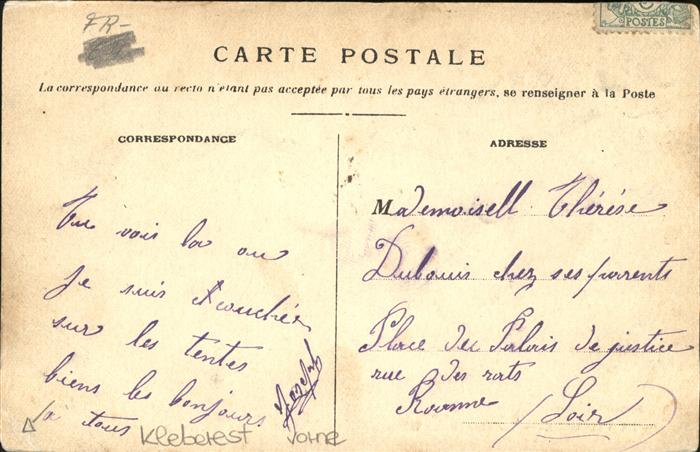 FR-
POSTES
CARTE POSTALE
La correspondance au recto n'étant pas acceptée par tous les pays étrangers, se renseigner à la Poste
CORRESPONDANCE
Tu vois la ou
je suis couchée
sur les tentes
biens les bonjours
a tous
Kleberest vorne
ADRESSE
Mademoisell Thérése
Dubouis chez ses parrents
Place du Palais de justice
rue des rats
Roanne (Loir)